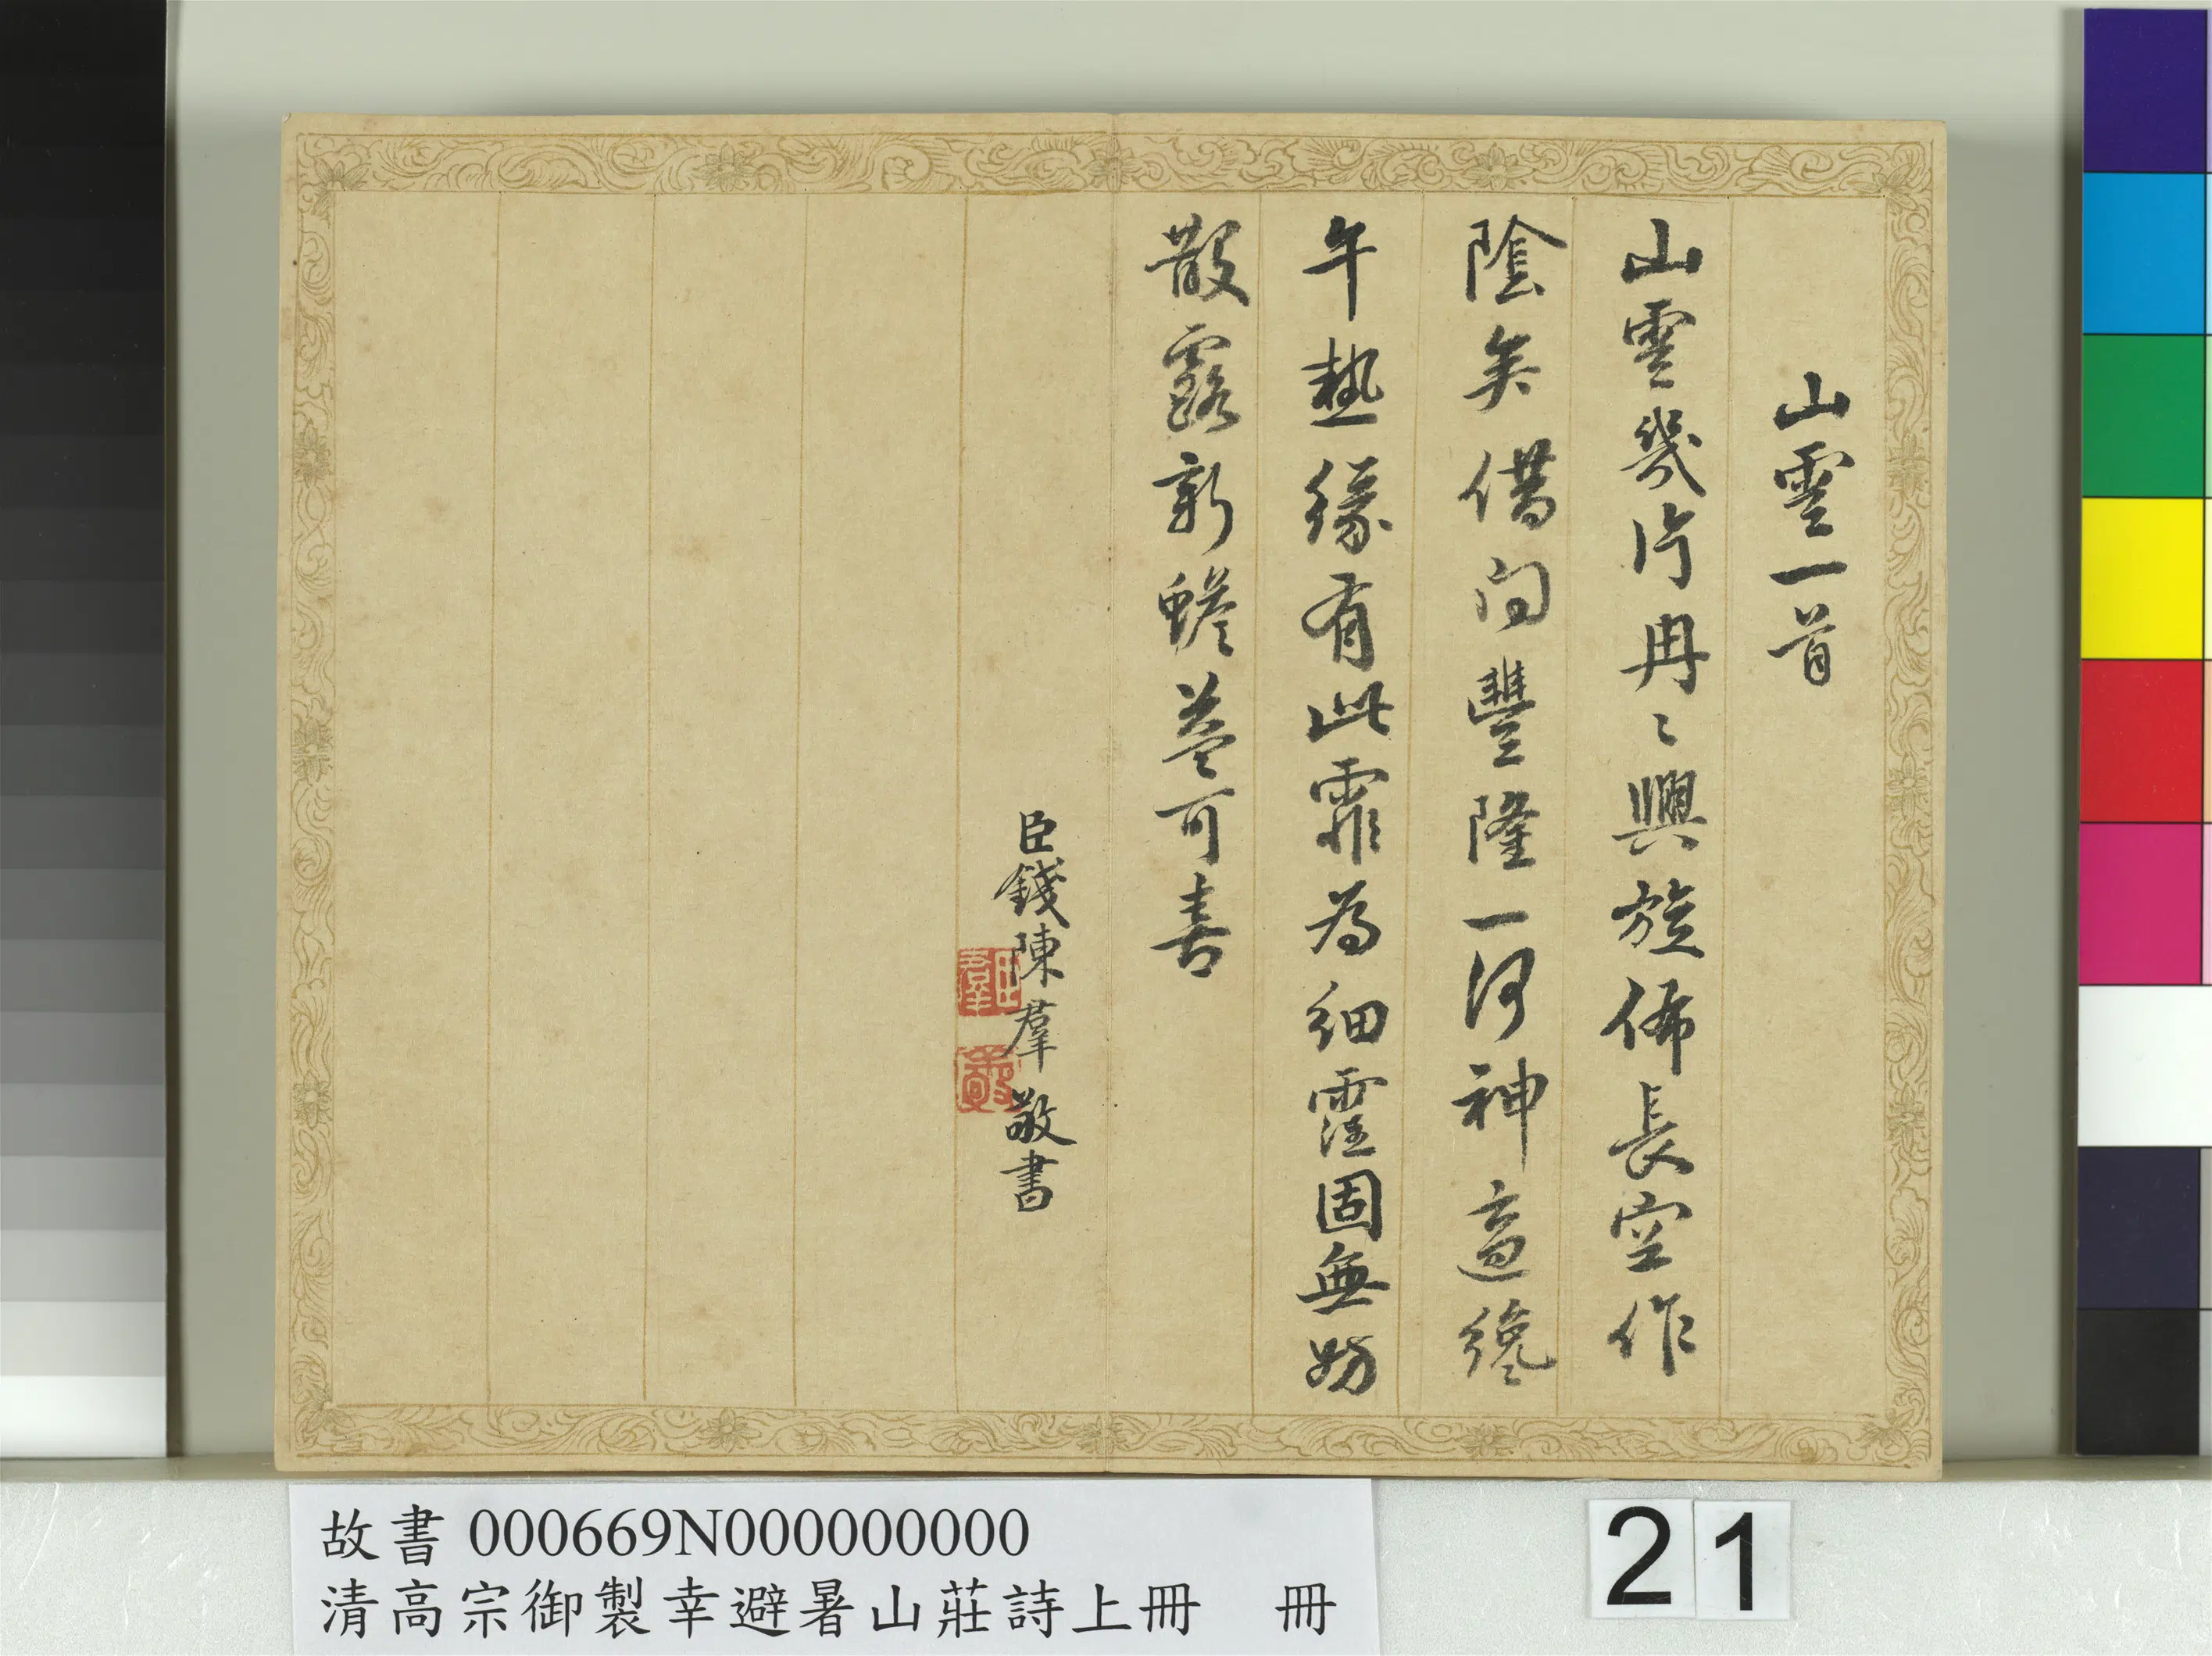 山雲一首
山雲幾片冉〻興旋佈長空作
陰矣借問豐隆一何神適纔
午熱緣有此霏為細霔固無妨
散露新蟾益可喜
臣錢陳羣敬書
臣羣
故書 000669N000000000
清高宗御製幸避暑山莊詩上冊 冊
21